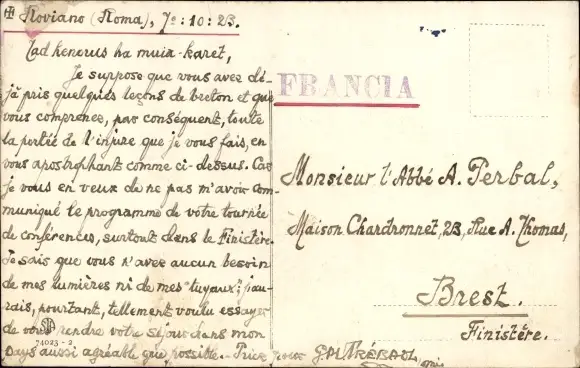 ✠ Roviano (Roma), 7º : 10 : 23.
Tad kenerus ha muia-karet,
Je suppose que vous avez dé-
jà pris quelques leçons de breton et que
vous comprenez, par conséquent, toute
la portée de l'injure que je vous fais, en
vous apostrophant comme ci-dessus. Car
je vous en veux de ne pas m'avoir com-
muniqué le programme de votre tournée
de conférences, surtout dans le Finistère.
Je sais que vous n'avez aucun besoin
de mes lumières ni de mes "tuyaux"; j'au-
rais, pourtant, tellement voulu essayer
de vous rendre votre séjour dans mon
pays aussi agréable que possible. - Priez pour
74023 - 2
FRANCIA
Monsieur l'Abbé A. Perbal,
Maison Chardronnet, 23, Rue A. Thomas,
Brest.
Finistère.